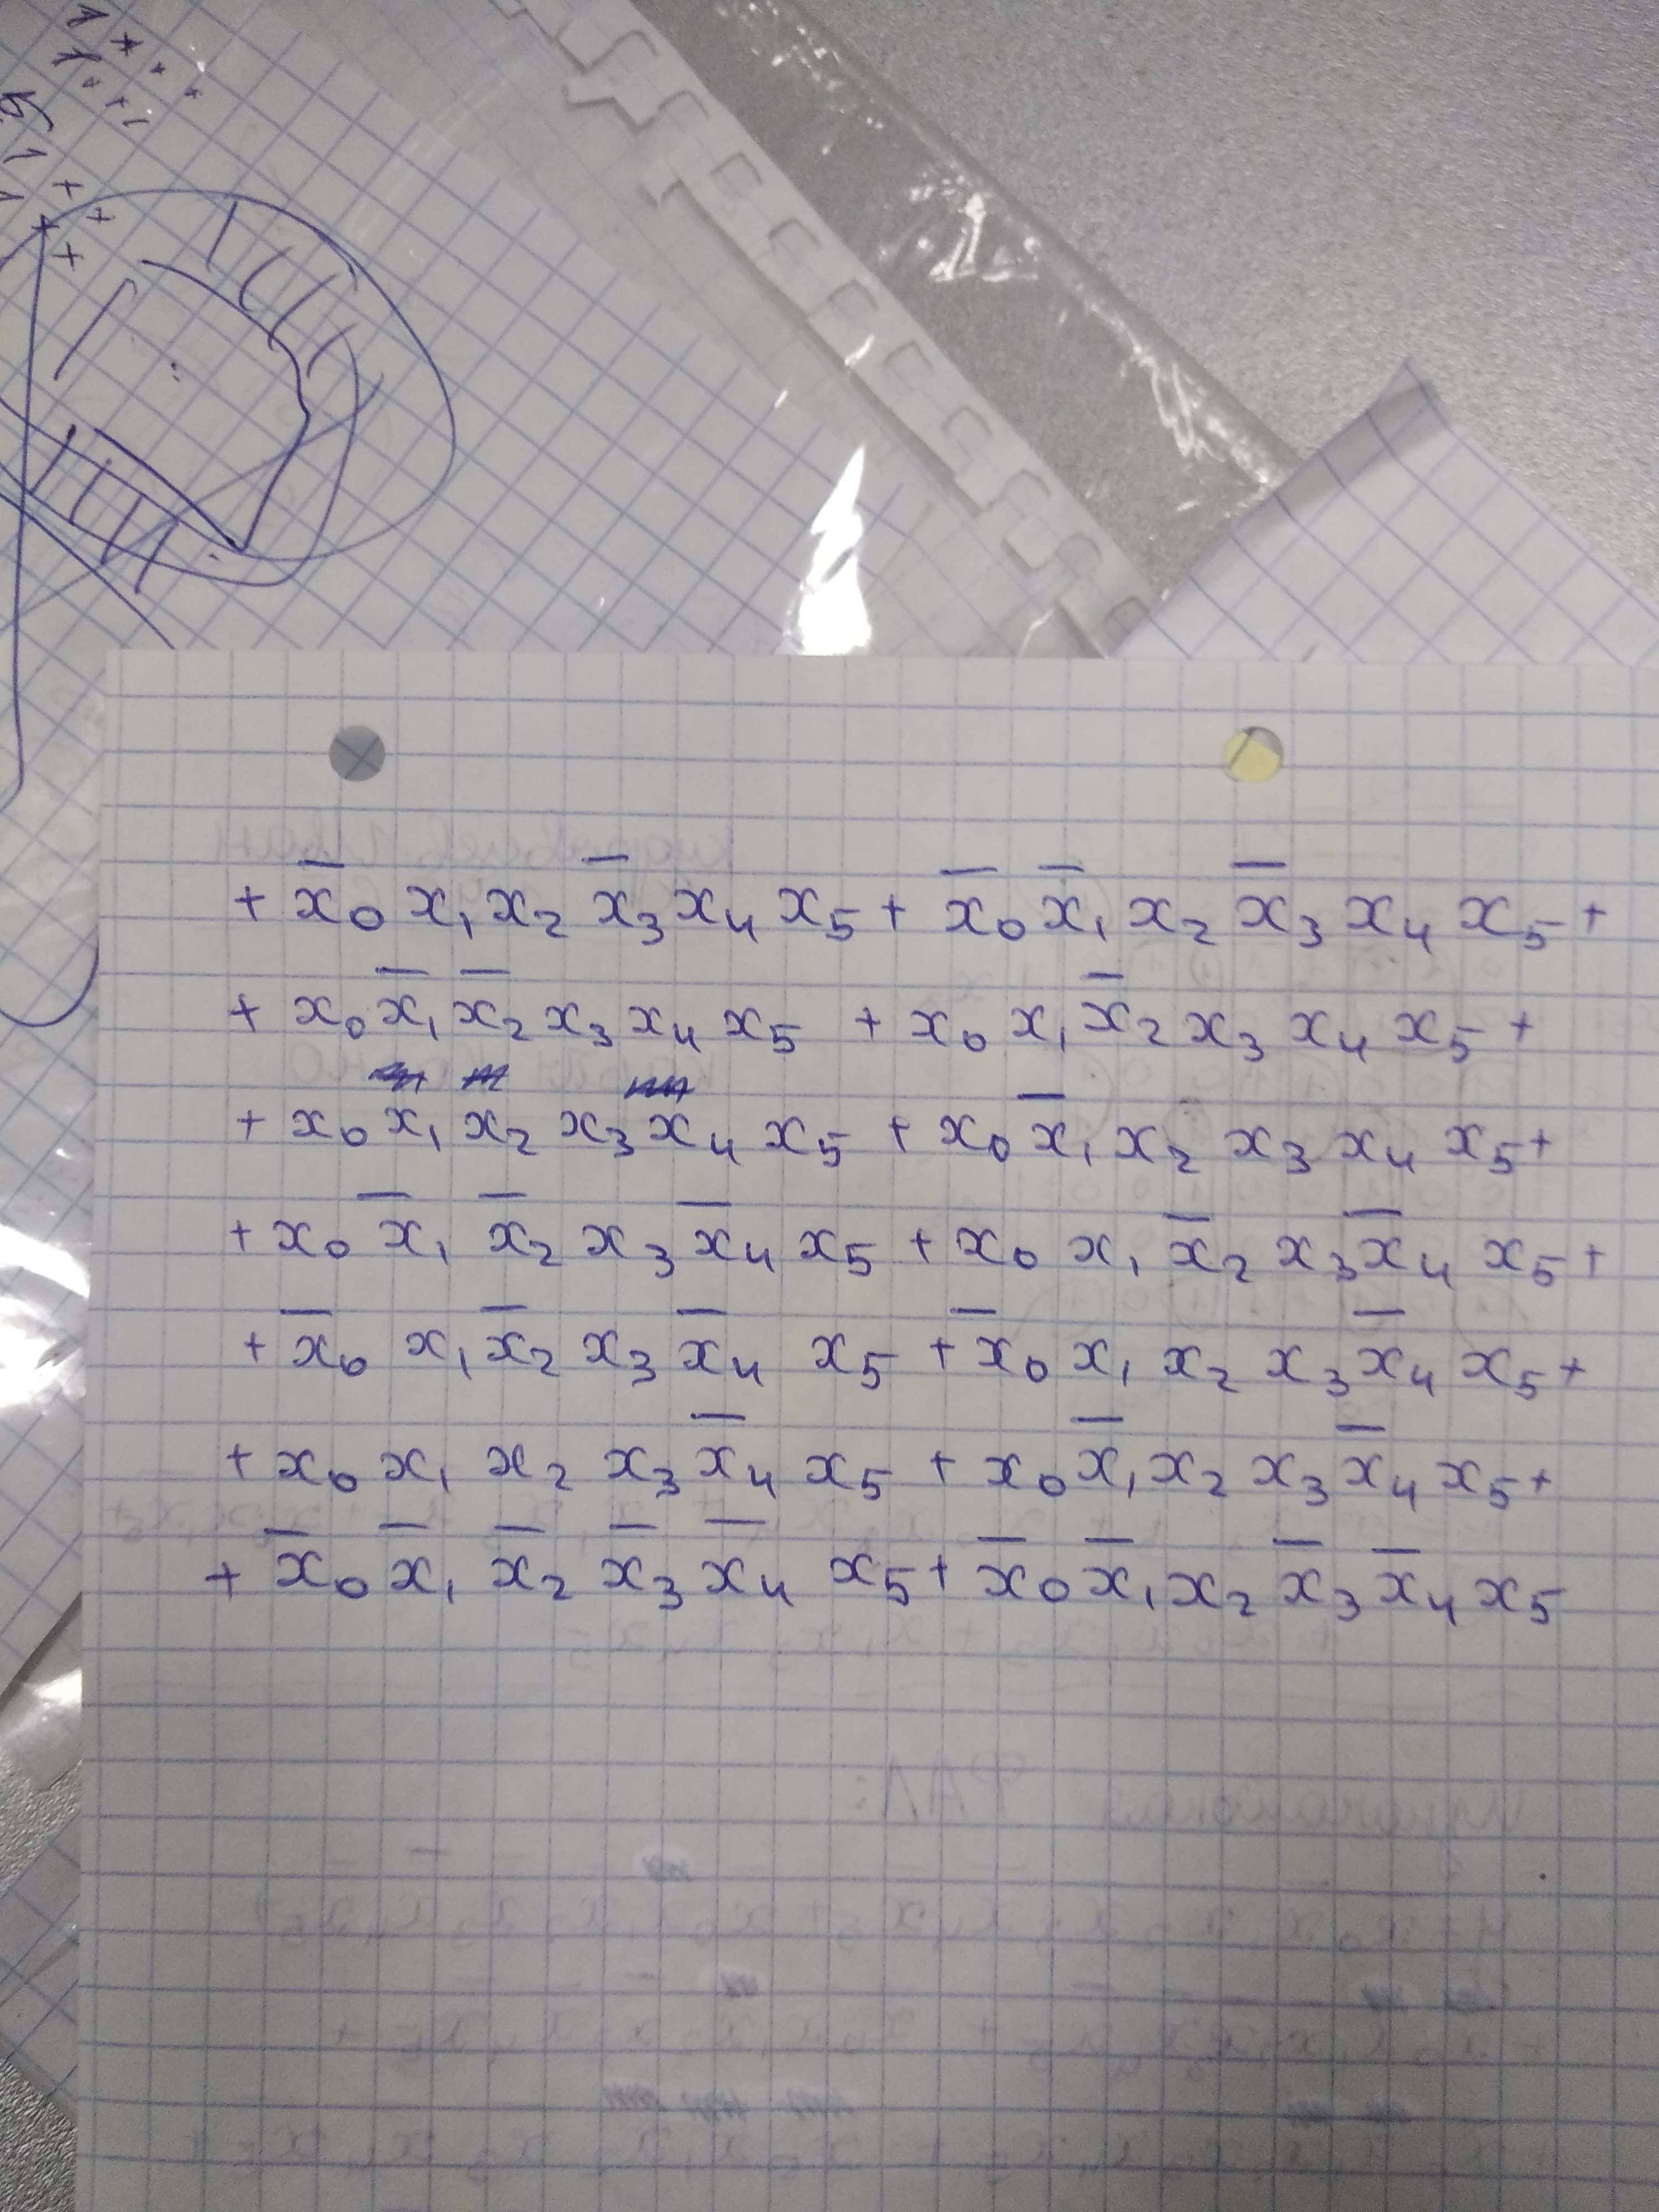 + x̄₀ x₁ x₂ x̄₃ x₄ x₅ + x̄₀ x̄₁ x₂ x̄₃ x₄ x₅ +
+ x₀ x̄₁ x̄₂ x₃ x₄ x₅ + x₀ x₁ x̄₂ x₃ x₄ x₅ +
+ x₀ x₁ x₂ x₃ x₄ x₅ + x₀ x̄₁ x₂ x₃ x₄ x₅ +
+ x₀ x̄₁ x̄₂ x₃ x̄₄ x₅ + x₀ x₁ x̄₂ x₃ x̄₄ x₅ +
+ x̄₀ x₁ x̄₂ x₃ x̄₄ x₅ + x̄₀ x₁ x₂ x₃ x̄₄ x₅ +
+ x₀ x₁ x₂ x₃ x̄₄ x₅ + x₀ x̄₁ x₂ x₃ x̄₄ x₅ +
+ x̄₀ x̄₁ x̄₂ x̄₃ x̄₄ x₅ + x̄₀ x̄₁ x₂ x̄₃ x̄₄ x₅